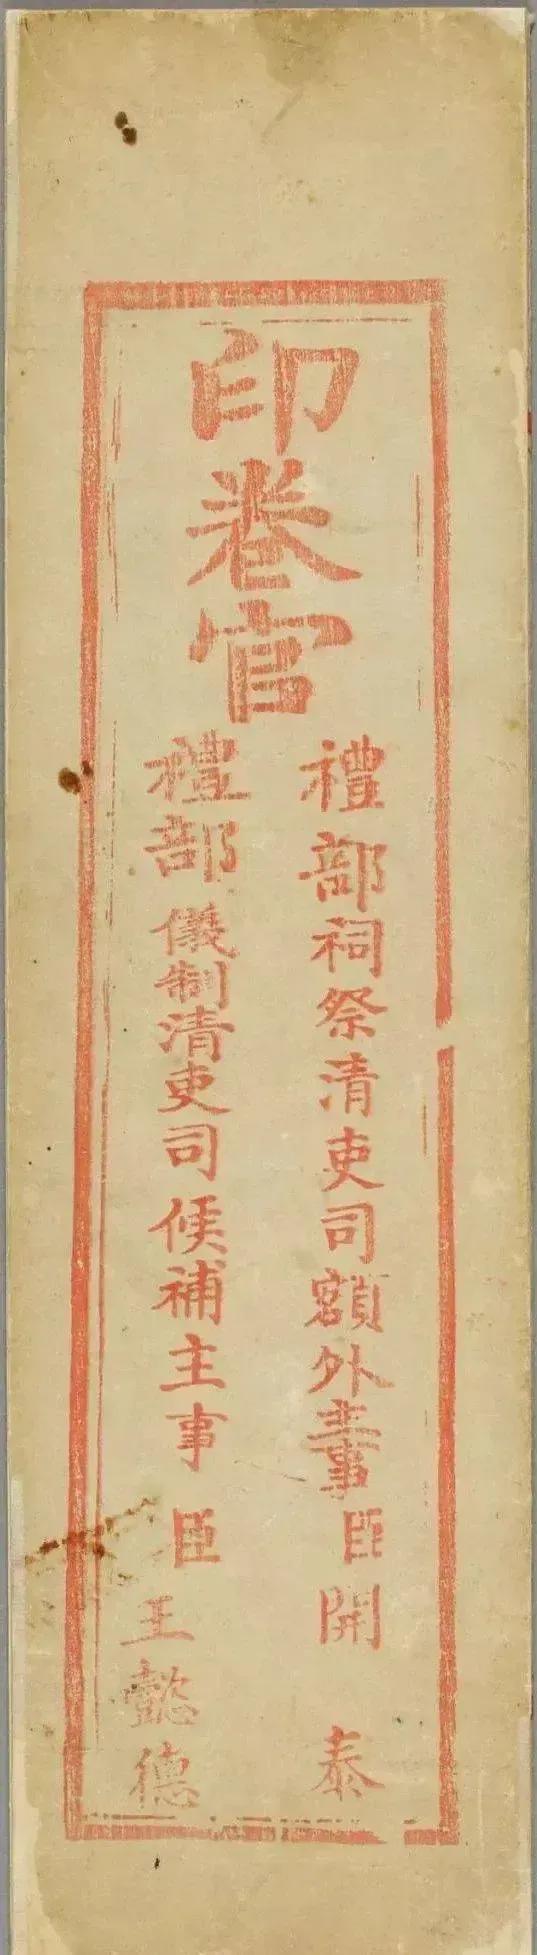 印卷官
禮部祠祭清吏司額外主事臣開泰
禮部儀制清吏司候補主事臣王懿德